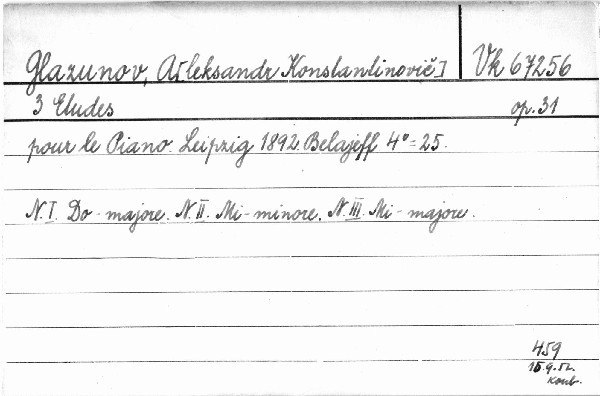 Glazunov, A[leksandr Konstantinovič] Vk 67256
3 Etudes op. 31
pour le Piano. Leipzig 1892. Belajeff 4° = 25.
N. I. Do - majore. N. II. Mi - minore. N. III. Mi - majore.
459
15.9.52.
Koub.